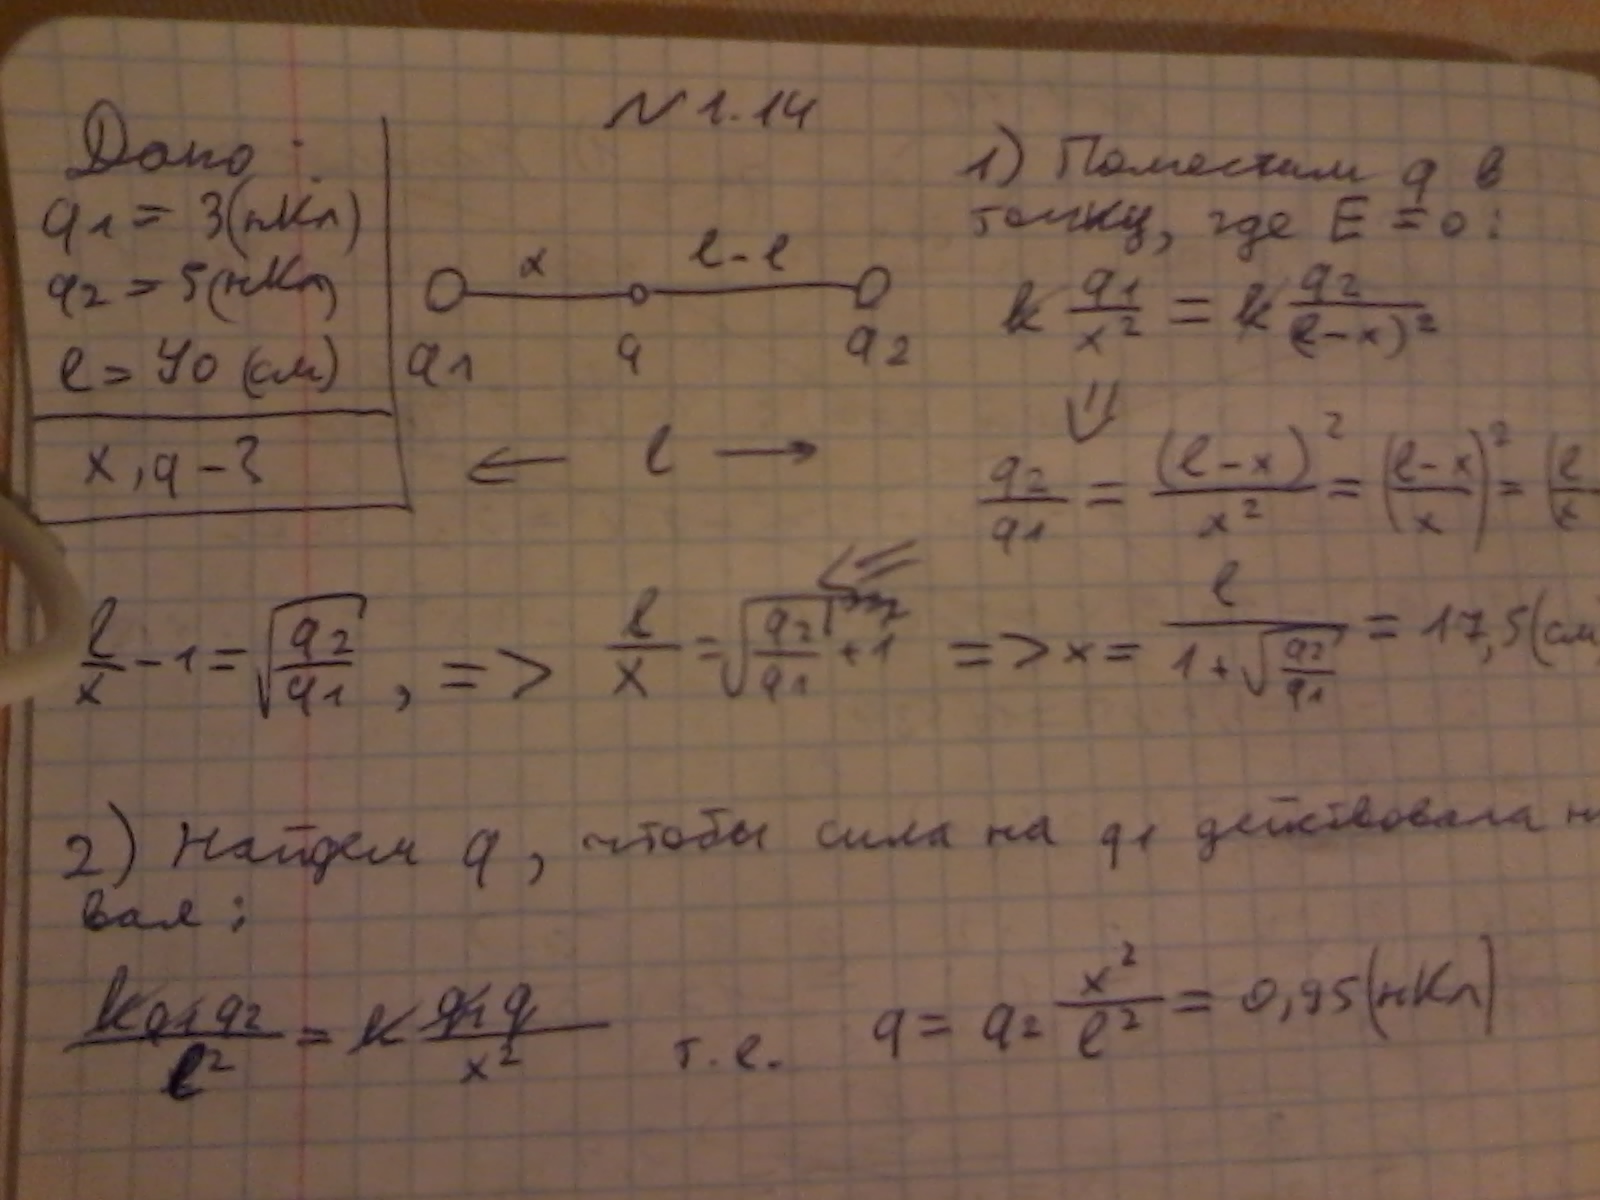 N 1.14
Дано:
q1 = 3(нКл)
q2 = 5(нКл)
l = 40 (см)
x, q - ?
x l - l
q1 q q2
← l →
1) Поместим q в
точку, где E = 0:
k q1/x² = k q2/(l-x)²
⇓
q2/q1 = (l-x)²/x² = ((l-x)/x)² = (l/x
⇐
l/x - 1 = √(q2/q1), => l/x = √(q2/q1) + 1 => x = l/(1+√(q2/q1)) = 17,5(см)
2) Найдем q, чтобы сила на q1 действовала н
вая:
kq1q2/l² = k q1q/x² т.е. q = q2 x²/l² = 0,95(нКл)